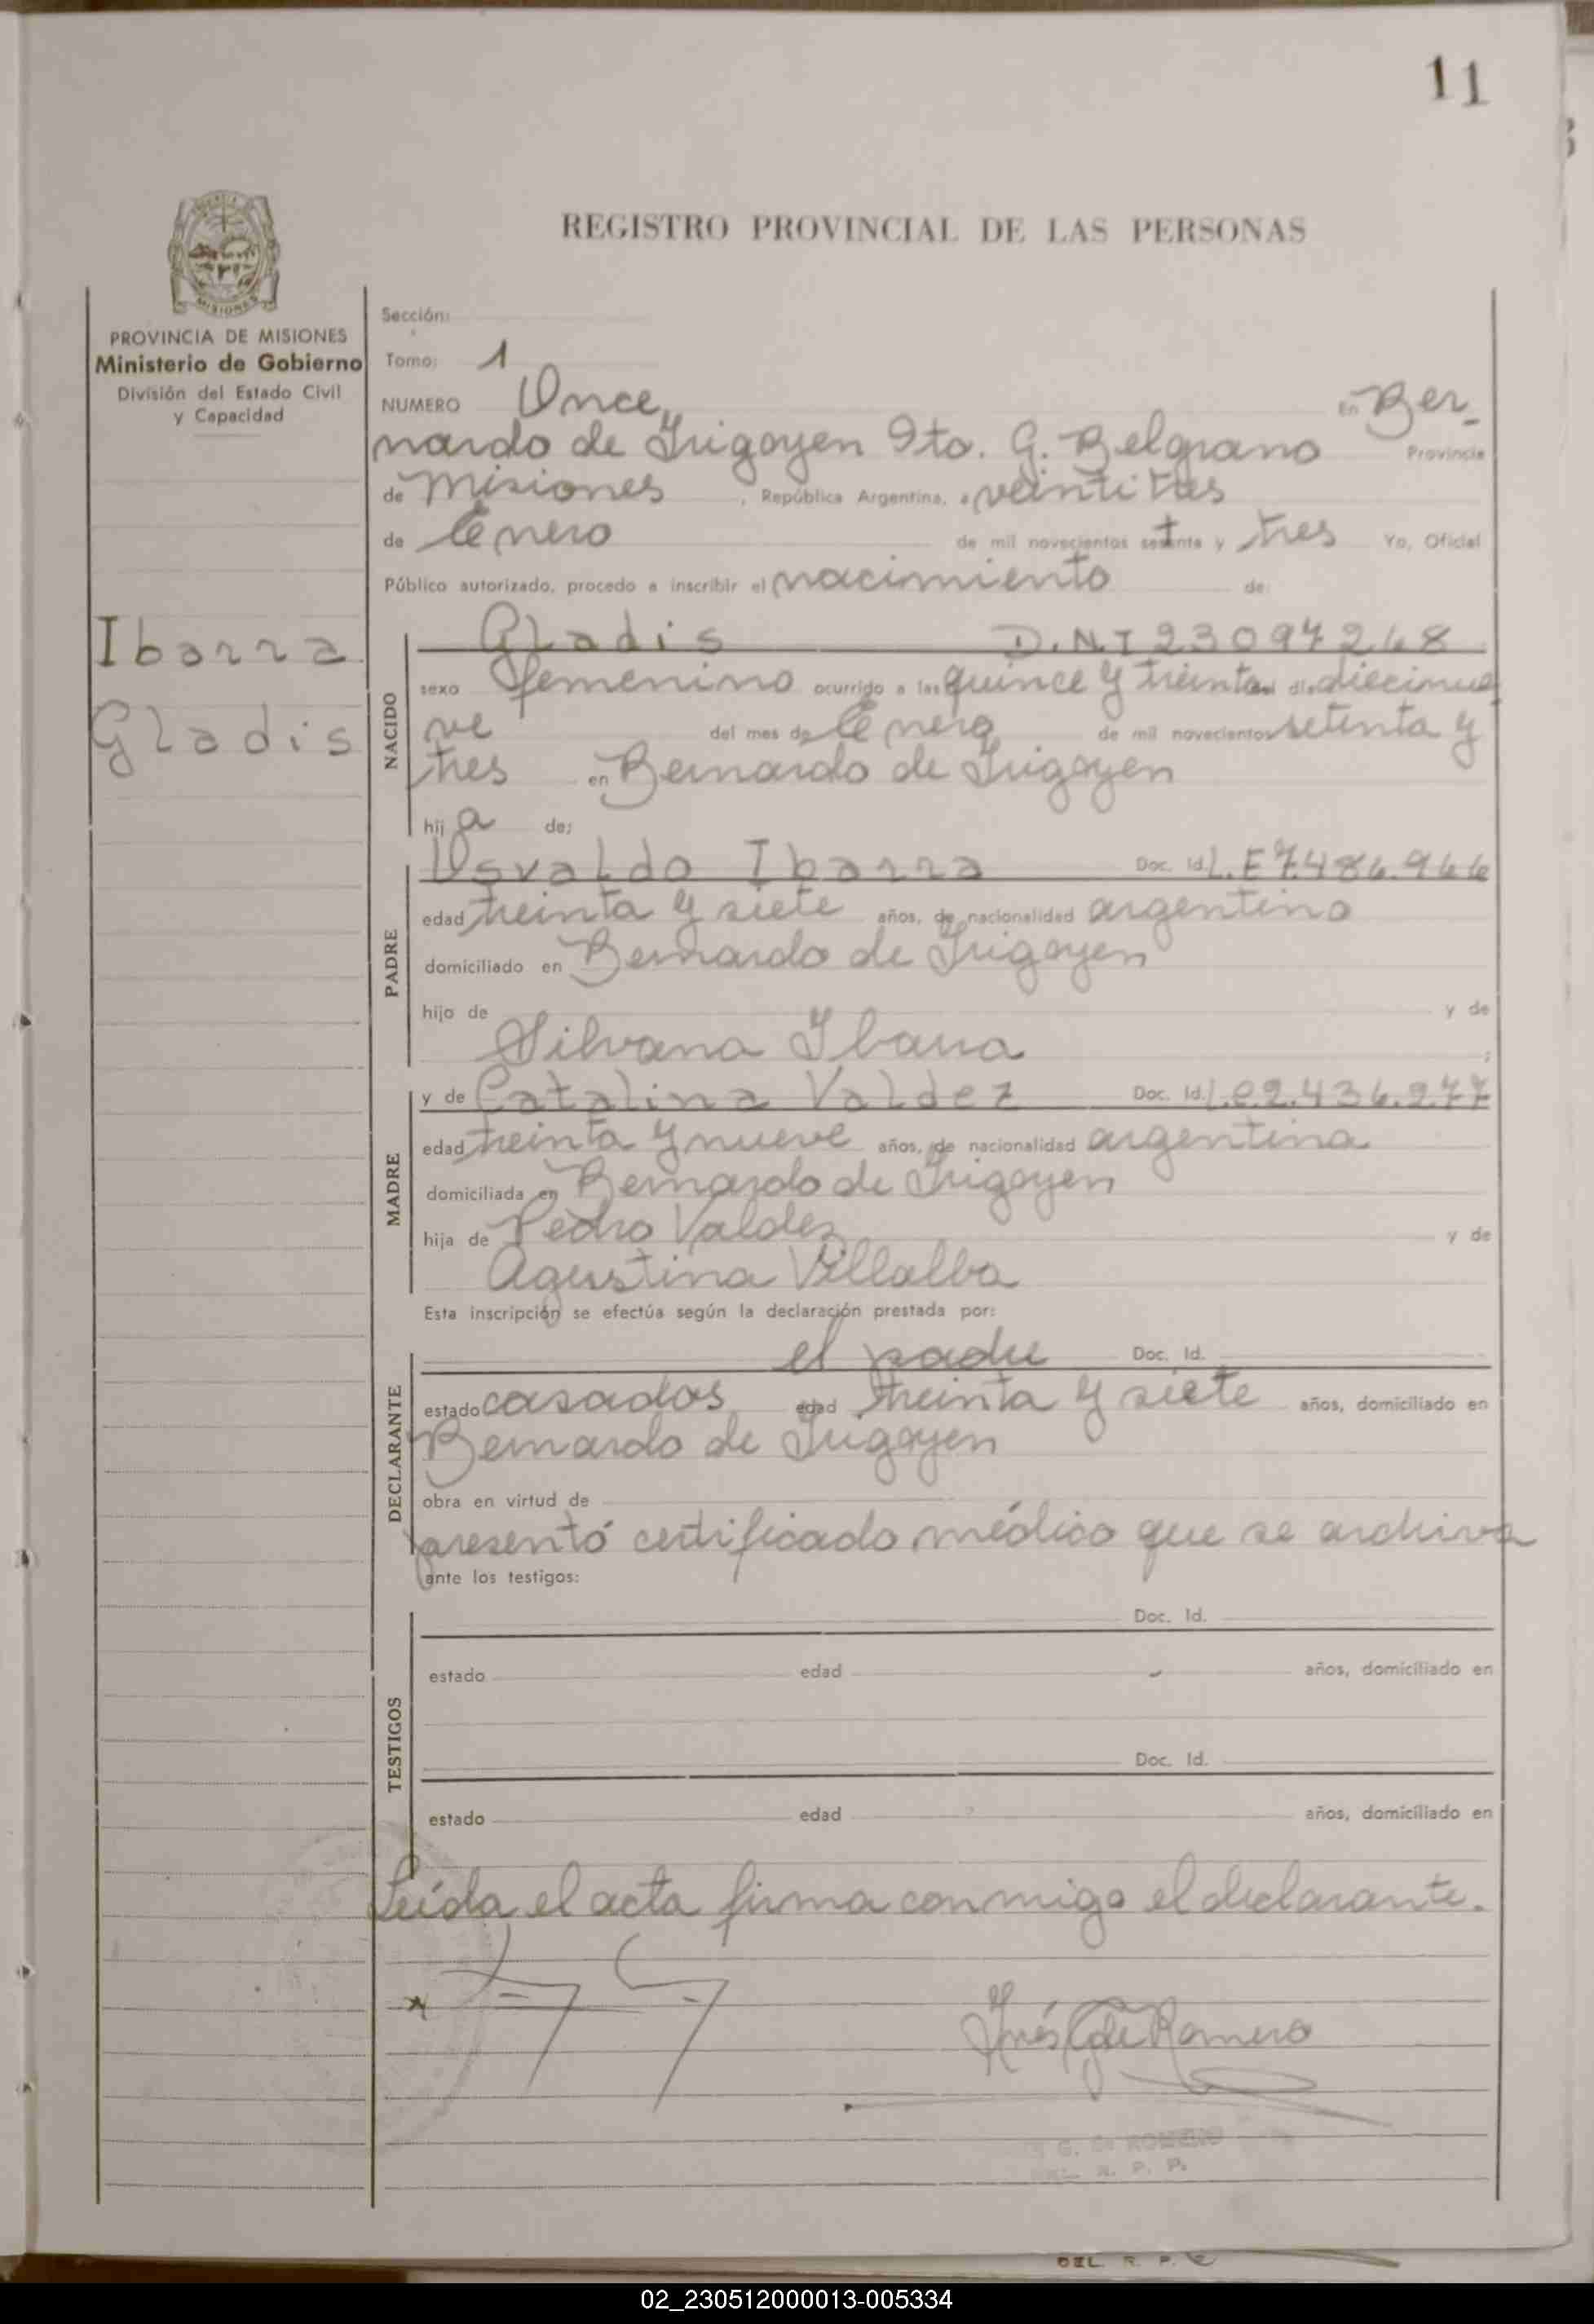 11
REGISTRO PROVINCIAL DE LAS PERSONAS
MISIONES
PROVINCIA DE MISIONES
Ministerio de Gobierno
División del Estado Civil
y Capacidad
Ibarra
Gladis
Sección:
Tomo: 1
NUMERO Once, En Ber-
nardo de Irigoyen Dto. G. Belgrano Provincia
de Misiones, República Argentina, a veintitres
de Enero de mil novecientos setenta y tres Yo, Oficial
Público autorizado, procedo a inscribir el nacimiento de:
NACIDO
Gladis D.N.I 23097268
sexo femenino ocurrido a las quince y treinta del día diecinue
ve del mes de Enero de mil novecientos setenta y
tres en Bernardo de Irigoyen
hij a de:
PADRE
Osvaldo Ibarra Doc. Id. L.E 7.486.966
edad treinta y siete años, de nacionalidad argentino
domiciliado en Bernardo de Irigoyen
hijo de y de
Silvana Ibarra ;
MADRE
y de Catalina Valdez Doc. Id. L.C 2.436.277
edad treinta y nueve años, de nacionalidad argentina
domiciliada en Bernardo de Irigoyen
hija de Pedro Valdez y de
Agustina Villalba
Esta inscripción se efectúa según la declaración prestada por:
DECLARANTE
el padre Doc. Id.
estado casados edad treinta y siete años, domiciliado en
Bernardo de Irigoyen
obra en virtud de
presentó certificado médico que se archiva
ante los testigos:
TESTIGOS
Doc. Id.
estado edad años, domiciliado en
Doc. Id.
estado edad años, domiciliado en
Leída el acta firma conmigo el declarante.
Inés G de Romero
G. de ROMERO
R. P. P.
DEL. R. P.
02_230512000013-005334